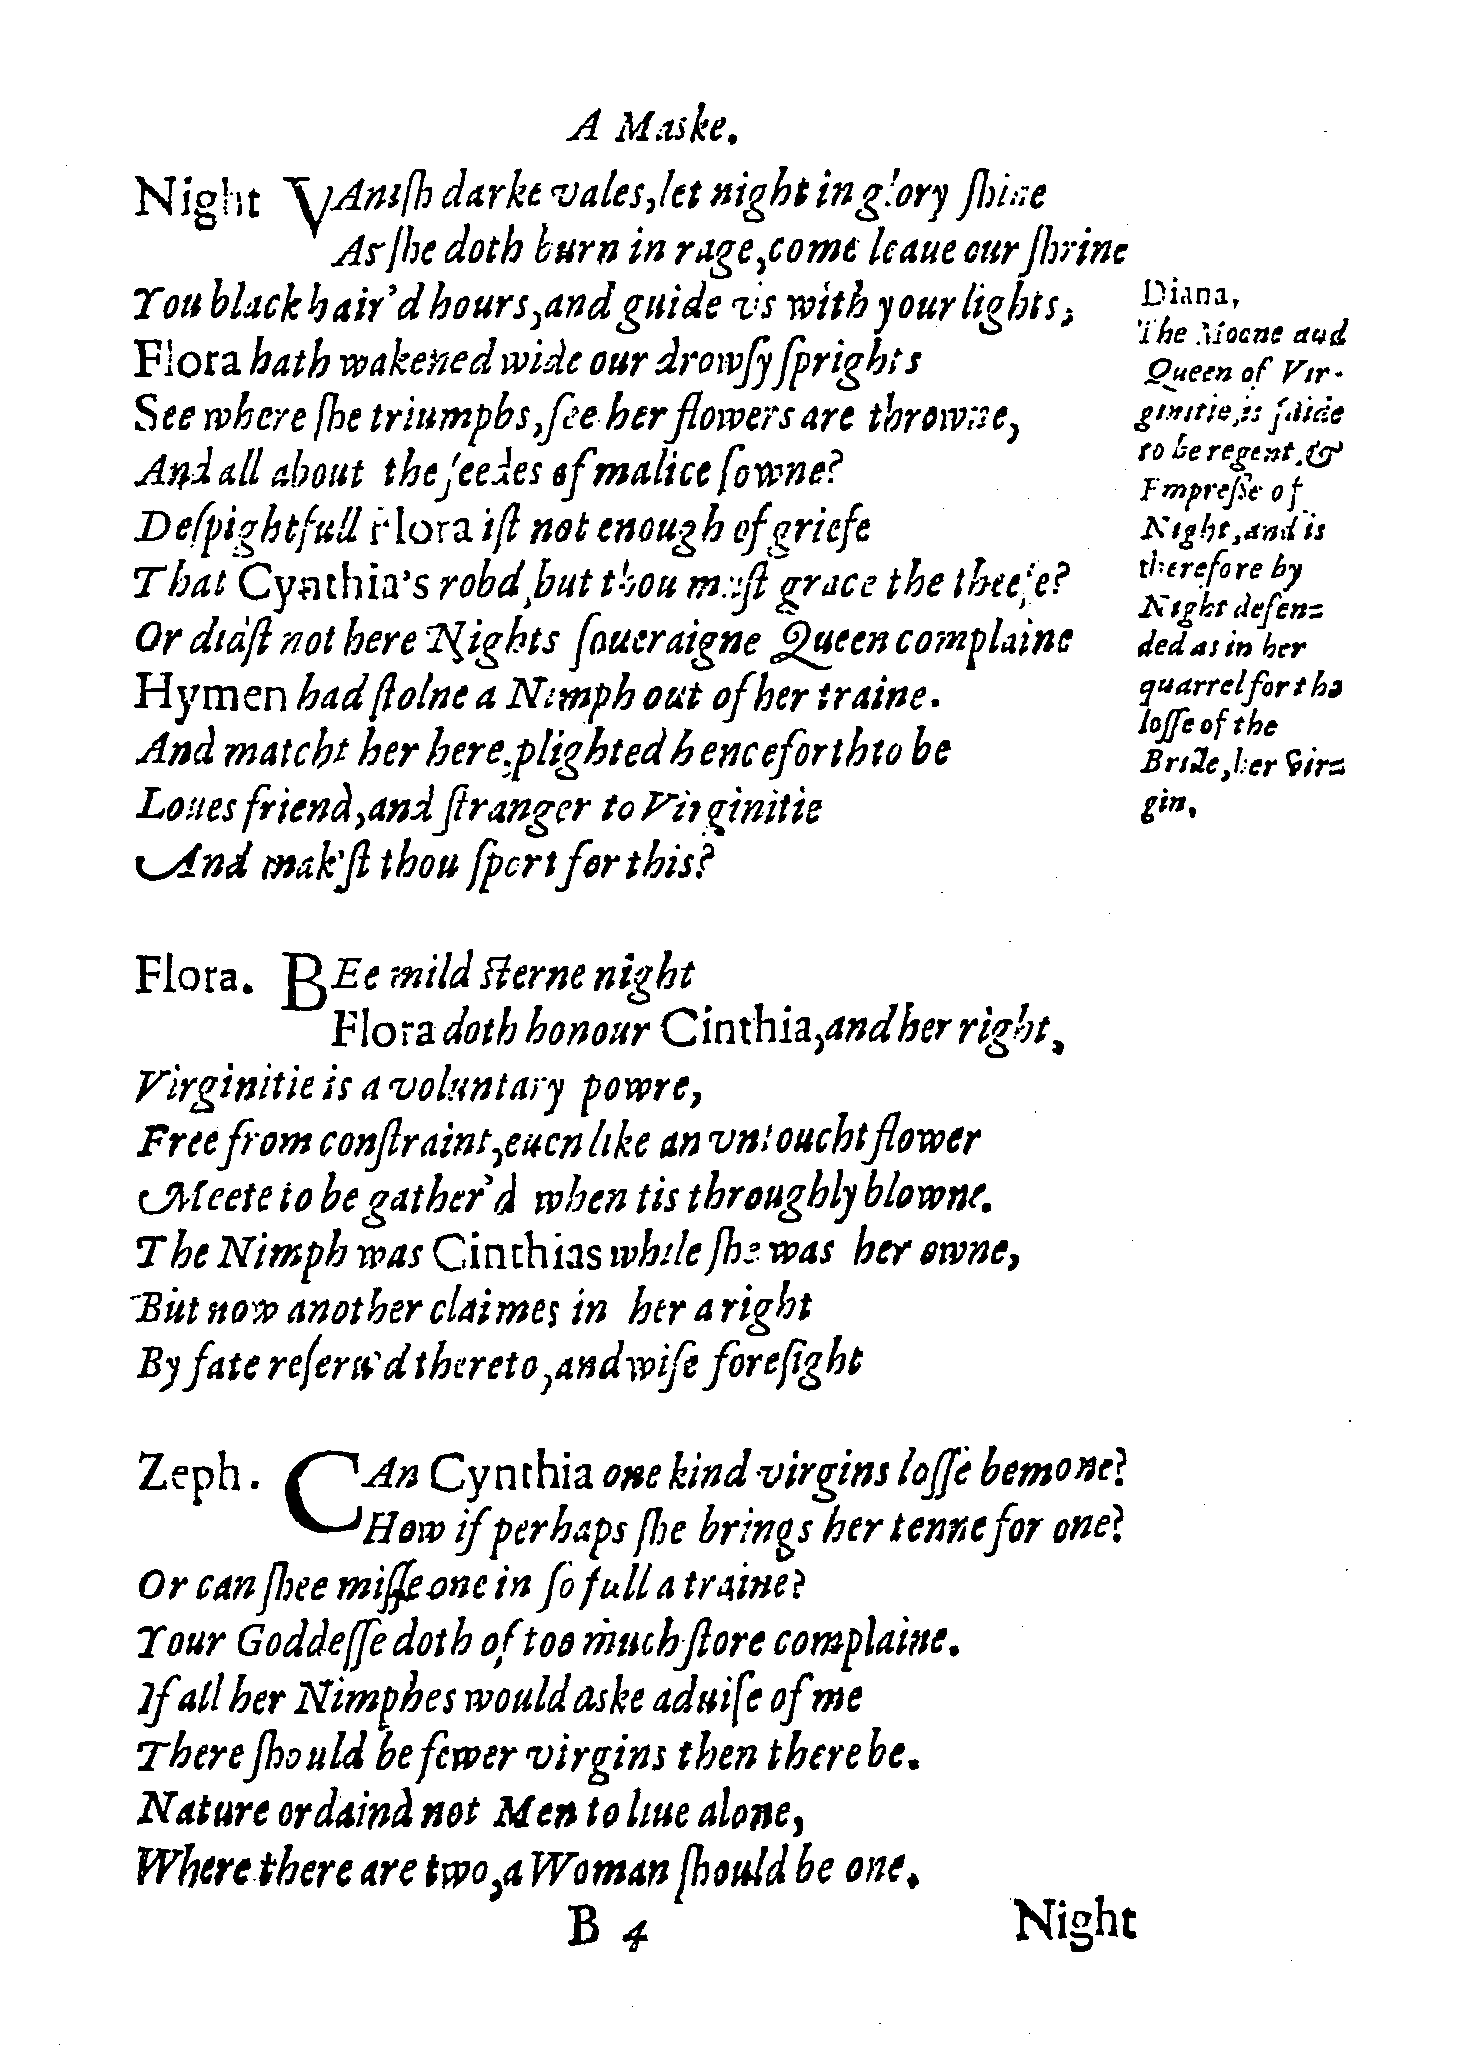 A Maske.
Night VAniſh darke vales,let night in glory ſhine
As ſhe doth burn in rage,come leaue our ſhrine
You black hair'd hours,and guide vs with your lights,
Flora hath wakened wide our drowſy ſprights
See where ſhe triumphs,ſee her flowers are throwne,
And all about the ſeedes of malice ſowne?
Deſpightfull Flora iſt not enough of griefe
That Cynthia's robd,but thou muſt grace the theefe?
Or didſt not here Nights ſoueraigne Queen complaine
Hymen had ſtolne a Nimph out of her traine.
And matcht her here,plighted henceforth to be
Loues friend,and ſtranger to Virginitie
And mak'ſt thou ſport for this?
Diana,
The Moone and
Queen of Vir-
ginitie,is ſaide
to be regent &
Empreſſe of
Night,and is
therefore by
Night defen=
ded as in her
quarrel for the
loſſe of the
Bride,her Vir=
gin.
Flora. BEe mild ſterne night
Flora doth honour Cinthia,and her right,
Virginitie is a voluntary powre,
Free from conſtraint,euen like an vntoucht flower
Meete to be gather'd when tis throughly blowne.
The Nimph was Cinthias while ſhe was her owne,
But now another claimes in her a right
By fate reſeru'd thereto,and wiſe foreſight
Zeph. CAn Cynthia one kind virgins loſſe bemone?
How if perhaps ſhe brings her tenne for one?
Or can ſhee miſſe one in ſo full a traine?
Your Goddeſſe doth of too much ſtore complaine.
If all her Nimphes would aske aduiſe of me
There ſhould be fewer virgins then there be.
Nature ordaind not Men to liue alone,
Where there are two,a Woman ſhould be one.
B 4
Night